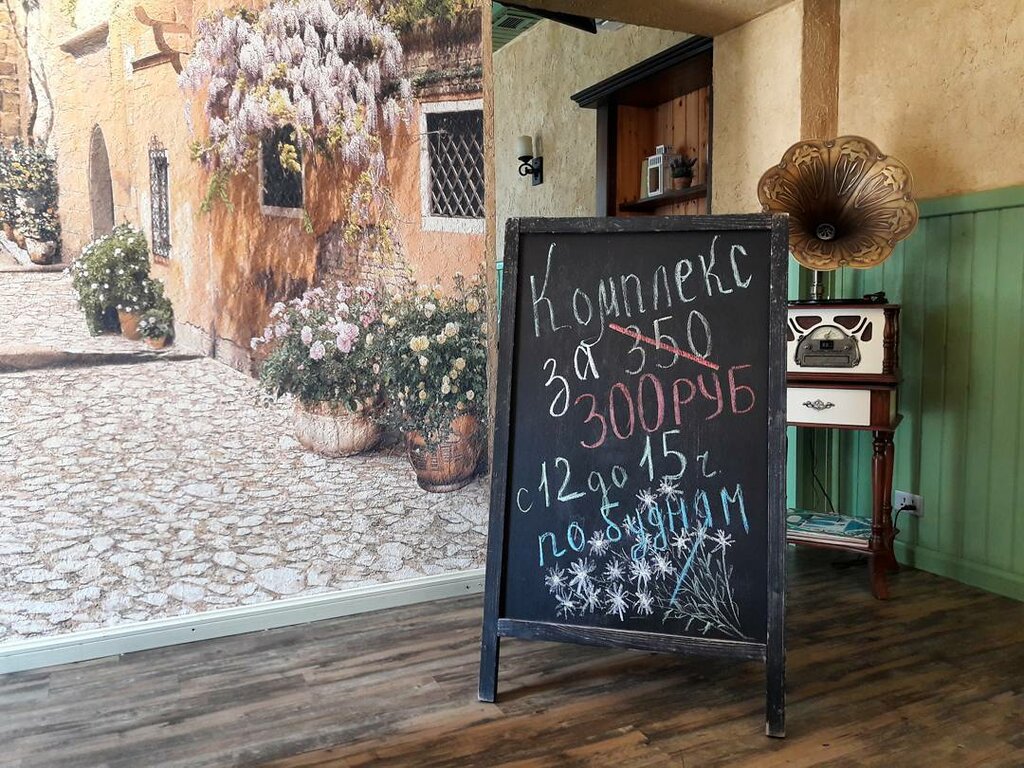 Комплекс
за 350
300РУБ
с 12 до 15 ч.
по будням